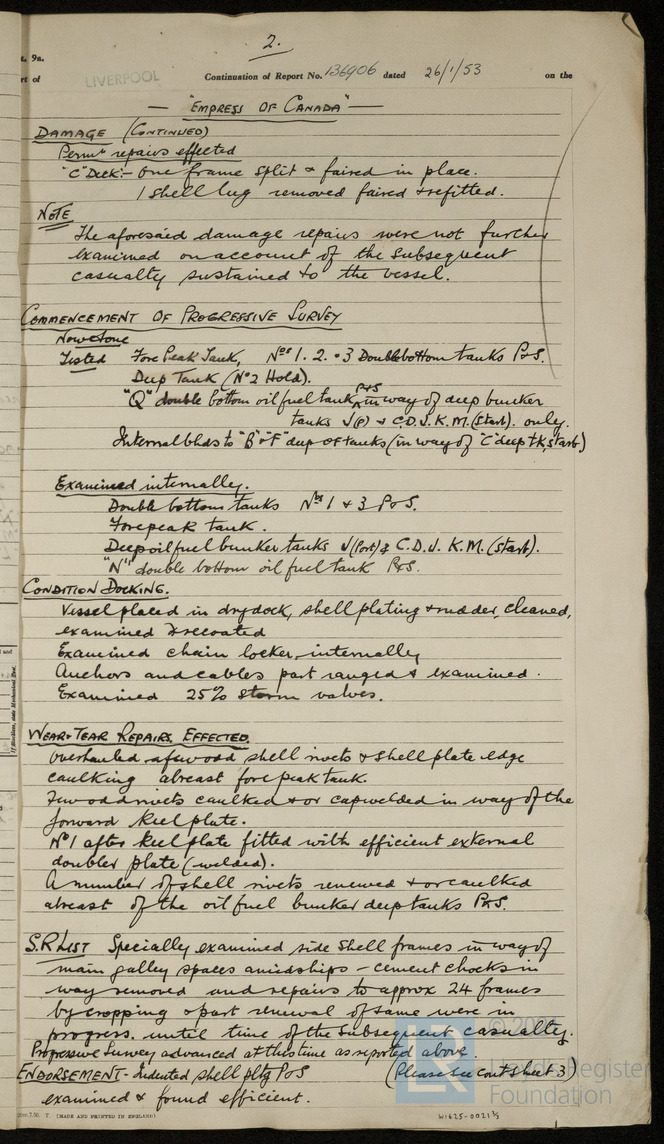 2.
t. 9a.
rt of LIVERPOOL Continuation of Report No. 136906 dated 26/1/53 on the
— "EMPRESS OF CANADA" —
DAMAGE (CONTINUED)
Permt repairs effected
"C" Deck:- One frame split & faired in place.
1 shell lug removed faired & refitted.
NOTE
The aforesaid damage repairs were not further
examined on account of the subsequent
casualty sustained to the vessel.
COMMENCEMENT OF PROGRESSIVE SURVEY
Now done
Tested Fore Peak Tank, Nos 1. 2. & 3 Double bottom tanks P&S.
Deep Tank (No 2 Hold).
"Q" double bottom oil fuel tank P&S in way of deep bunker
tanks J(P) & C.D.J.K.M. (Starb). only.
Internal bhds to "B" & "F" deep of tanks (in way of "C" deep tk, starb)
Examined internally.
Double bottom tanks Nos 1 & 3 P&S.
Forepeak tank.
Deep oil fuel bunker tanks J (Port) & C.D.J.K.M. (Starb).
"N" double bottom oil fuel tank P&S.
CONDITION DOCKING.
Vessel placed in drydock, shell plating & rudder, cleaned,
examined & recoated
Examined chain locker, internally
Anchors and cables part ranged & examined.
Examined 25% storm valves.
WEAR & TEAR REPAIRS EFFECTED
Overhauled a few odd shell rivets & shell plate edge
caulking abreast fore peak tank.
Few odd rivets caulked & or capwelded in way of the
forward keel plate.
No 1 after keel plate fitted with efficient external
doubler plate (welded).
A number of shell rivets renewed & or caulked
abreast of the oil fuel bunker deep tanks P&S.
S.R LIST Specially examined side shell frames in way of
main galley spaces amidships - cement chocks in
way removed and repairs to approx 24 frames
by cropping & part renewal of same were in
progress. until time of the subsequent casualty.
Progressive Survey advanced at this time as reported above.
ENDORSEMENT - Indented shell pltg P&S (Please see cont sheet 3)
examined & found efficient.
7.50. T. (MADE AND PRINTED IN ENGLAND)
W1625-0021 2/3
LR
Lloyd's Register
Foundation